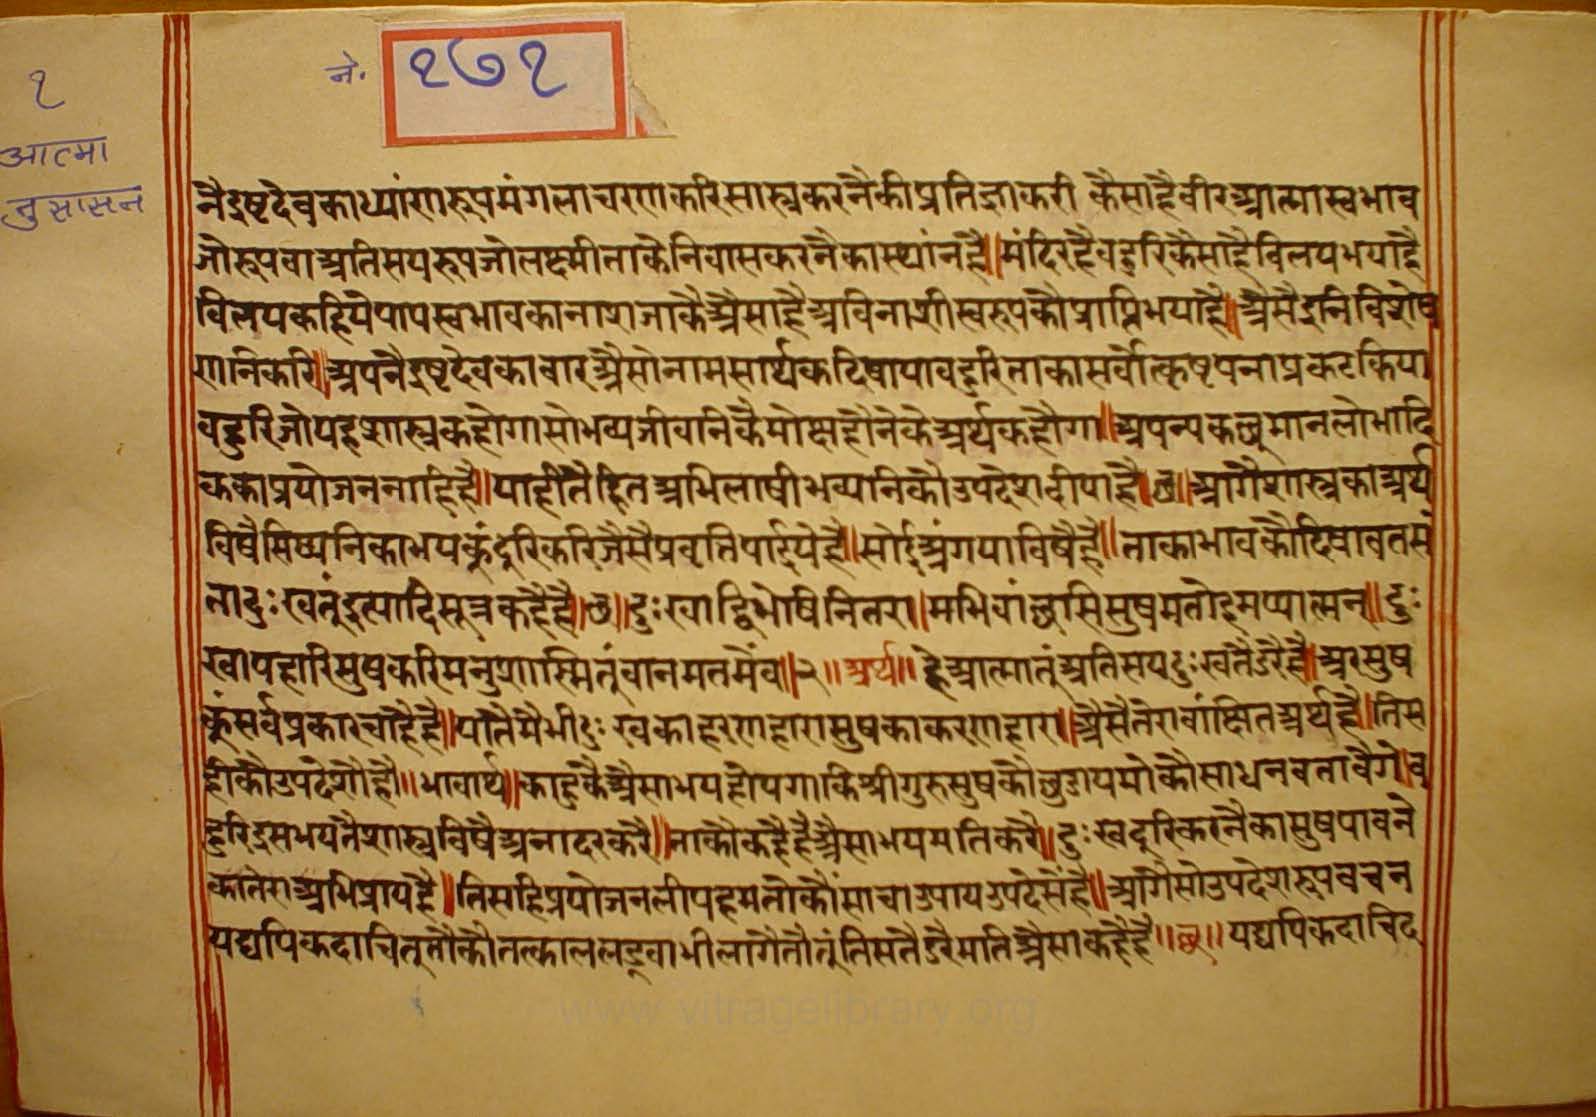 १
आत्मा
नुसासन
ने. १७१
नैइष्टदेवकाध्यांणरूपमंगलाचरणकरिसास्त्रकरनैकीप्रतिज्ञाकरी कैसाहैवीरआत्मास्वभाव
जोरूपवाअतिसयरूपजोलक्ष्मीताकेनिवासकरनैकास्थांनहै॥मंदिरहैबहुरिकैसाहैविलयभयाहै
विलयकहियेपापस्वभावकानाशजाकैअैसाहैअविनाशीस्वरूपकौप्राप्तिभयाहै॥अैसैइनिविशेष
णनिकरि॥अपनैइष्टदेवकावीरअैसोनामसार्थकदिषायाबहुरिताकासर्वोत्कृष्टपनाप्रकटकिया
बहुरिजोयहशास्त्रकहोगासोभव्यजीवनिकैमोक्षहौनेकेअर्थकहौगा॥अपन्यकछुमानलोभादि
ककाप्रयोजननाहिहै॥याहीतैहितअभिलाषीभव्यनिकौउपदेशदीयाहै॥छ॥आगैशास्त्रकाअर्थ
विषैसिष्यनिकाभयकुंदुरिकरिजैसैप्रवृतिपाईयेहै॥सोईअंगयाविषैहै॥ताकाभावकौदिषावतसं
तादुःखतुंइत्यादिसूत्रकहैहै॥छ॥दुःखाद्विभेषिनितरा॥मभिवांछसिसुषमतोहमप्यात्मन्॥दुः
खापहारिसुषकरिमनुशास्मितुंवानमतमेव॥२॥अर्थ॥हेआत्मातुंअतिसयदुःखतैडरैहै॥अरसुष
कुंसर्वप्रकारचाहैहै॥यातैमैभीदुःखकाहरणहारासुषकाकरणहारा॥अैसैतेरावांक्षितअर्थहै॥तिस
हीकौउपदेशौहौ॥भावार्थ॥काहुकैअैसाभयहोयगाकिश्रीगुरुसुषकौछुडायमोकौसाधनबतावैगे॥ब
हुरिइसभयतैशास्त्रविषैअनादरकरै॥ताकौकहैहैअैसाभयमतिकरै॥दुःखदुरिकरनैकासुषपावने
कातेराअभिप्रायहै॥तिसहिप्रयोजनलीयहमतोकौंसाचाउपायउपदेसेंहै॥आगैसोउपदेशरूपवचन
यद्यपिकदाचितुतौकौतत्कालकडूवाभीलागैतौतुंतिसतैडरैमतिअैसाकहैहै॥छ॥यद्यपिकदाचिद
www.vitragelibrary.org